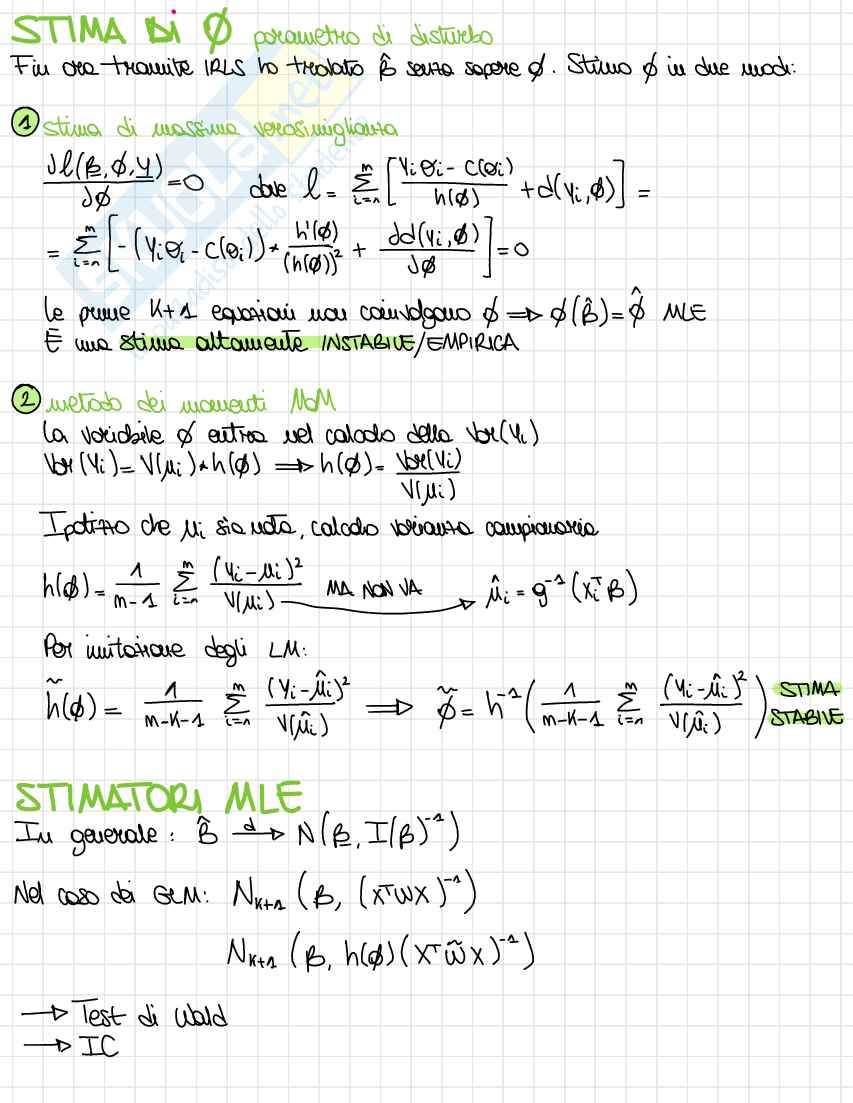 STIMA DI ϕ parametro di disturbo
Fin ora tramite IRLS ho trovato β̂ senza sapere ϕ. Stimo ϕ in due modi:
① stima di massima verosimiglianza
∂l(β,ϕ,y)/∂ϕ = 0 dove l = Σ_{i=1}^{n} [ (yiθi - c(θi))/h(ϕ) + d(yi,ϕ) ] =
= Σ_{i=1}^{n} [ -(yiθi - c(θi)) * h'(ϕ)/(h(ϕ))² + ∂d(yi,ϕ)/∂ϕ ] = 0
le prime K+1 equazioni non coinvolgono ϕ ⇒ ϕ(β̂) = ϕ̂ MLE
È una stima altamente INSTABILE/EMPIRICA
② metodo dei momenti MoM
La variabile ϕ entra nel calcolo della Var(Yi)
Var(Yi) = V(μi) * h(ϕ) ⇒ h(ϕ) = Var(Yi)/V(μi)
Ipotizzo che μi sia nota, calcolo varianza campionaria
h(ϕ) = 1/(n-1) Σ_{i=1}^{n} (yi - μi)²/V(μi) MA NON VA → μ̂i = g⁻¹(xiᵀβ)
Per imitazione degli LM:
h̃(ϕ) = 1/(n-K-1) Σ_{i=1}^{n} (yi - μ̂i)²/V(μ̂i) ⇒ ϕ̃ = h⁻¹( 1/(n-K-1) Σ_{i=1}^{n} (yi - μ̂i)²/V(μ̂i) ) STIMA STABILE
STIMATORI MLE
In generale: β̂ →ᵈ N(β, I(β)⁻¹)
Nel caso dei GLM: N_{K+1} (β, (XᵀWX)⁻¹)
N_{K+1} (β, h(ϕ)(XᵀW̃X)⁻¹)
→ Test di Wald
→ IC